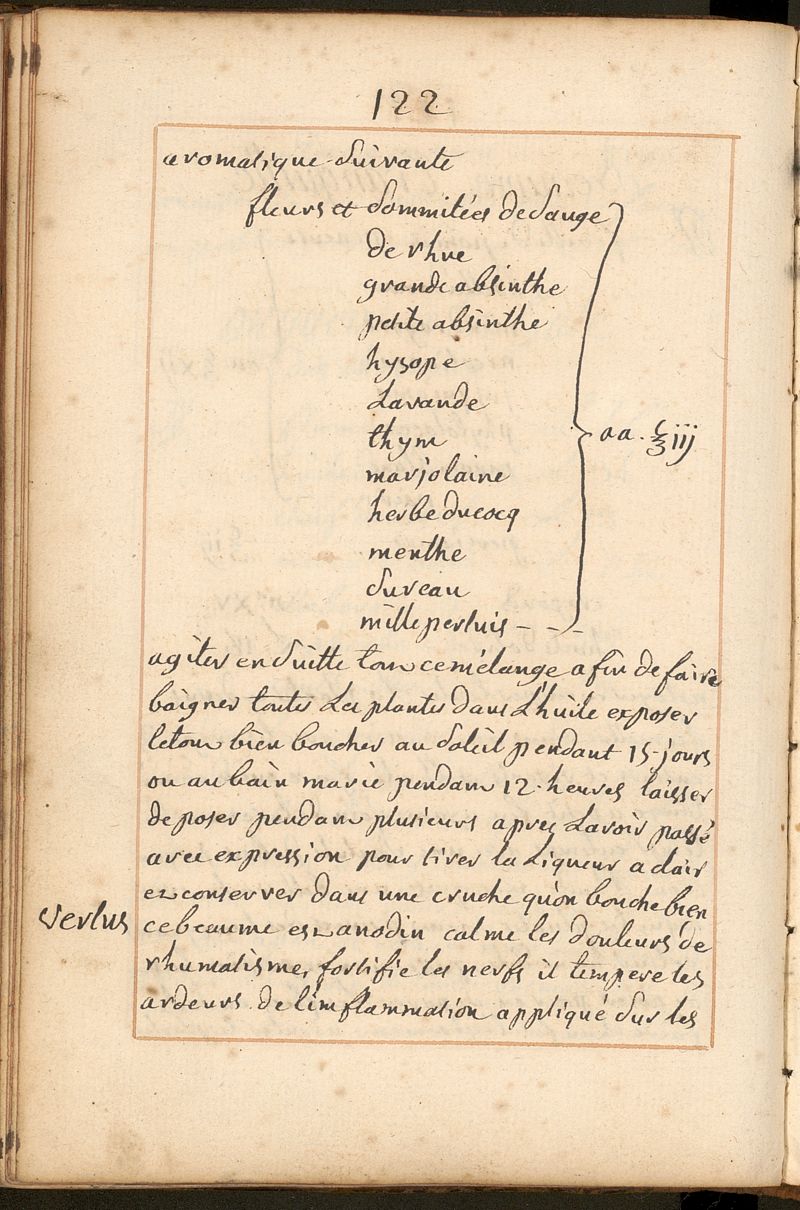 122
aromatique Suivante
fleurs et Sommitées de Sauge
de rhue
grande absinthe
petite absinthe
hysope
Lavande
thym
marjolaine
herbe du cocq
menthe
Sureau
mille pertuis - - -
aa. ℥iij
agiter en Suitte tout ce mélange afin de faire
baigner toutes Les plantes dans L'huile exposer
le tout bien boucher au Soleil pendant 15 jours
ou au bain marie pendant 12 heures laisser
deposer pendant plusieurs apres Lavoir passé
avec expression pour tirer la Liqueur a clair
et conserver dans une cruche qu'on bouche bien
vertus
ce beaume est anodin calme les douleurs de
rhumatisme, fortifie les nerfs il tempere les
ardeurs de l'imflammation appliqué Sur les